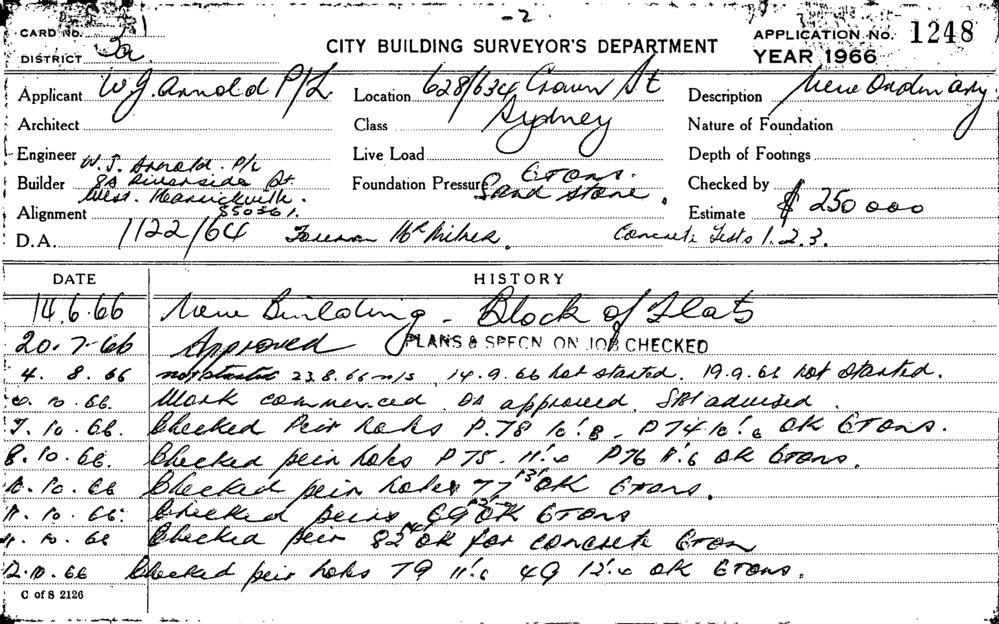 - 2
CARD No. 1
CITY BUILDING SURVEYOR'S DEPARTMENT
APPLICATION No. 1248
DISTRICT 3a
YEAR 1966
Applicant W J. Arnold P/L Location 628/634 Crown St Description New Ordinary
Architect Class Sydney Nature of Foundation
Engineer Live Load Depth of Footings
W. J. Arnold. P/L
Builder 8a Riverside St. Foundation Pressure 6 Tons. Sand stone. Checked by
West. Marrickville.
Alignment 550361. Estimate $ 250 000
D.A. 1122/64 Foreman Mr Milner. Concrete Tests 1. 2. 3.
DATE HISTORY
14.6.66 New Building - Block of Flats
20.7.66 Approved PLANS & SPECN ON JOB CHECKED
4. 8. 66 not started 23.8.66 n/s. 14.9.66 not started. 19.9.66 not started.
10. 66. Work commenced. DA approved. advised.
7. 10. 66. Checked Peir holes P.78 10'.8 - P74 10'.6 OK 6 Tons.
8. 10. 66. Checked peir holes P75 - 11'.0 P76 11'.6 OK 6 tons.
10. 10. 66 Checked peir holes 77 13' OK 6 Tons.
11. 10. 66. Checked peirs 69 OK 6 Tons
11. 10. 66 Checked Peir 82 OK for concrete 6 Ton
12.10.66 Checked peir holes 79 11'.6 49 12'.0 OK 6 Tons.
C of S 2126